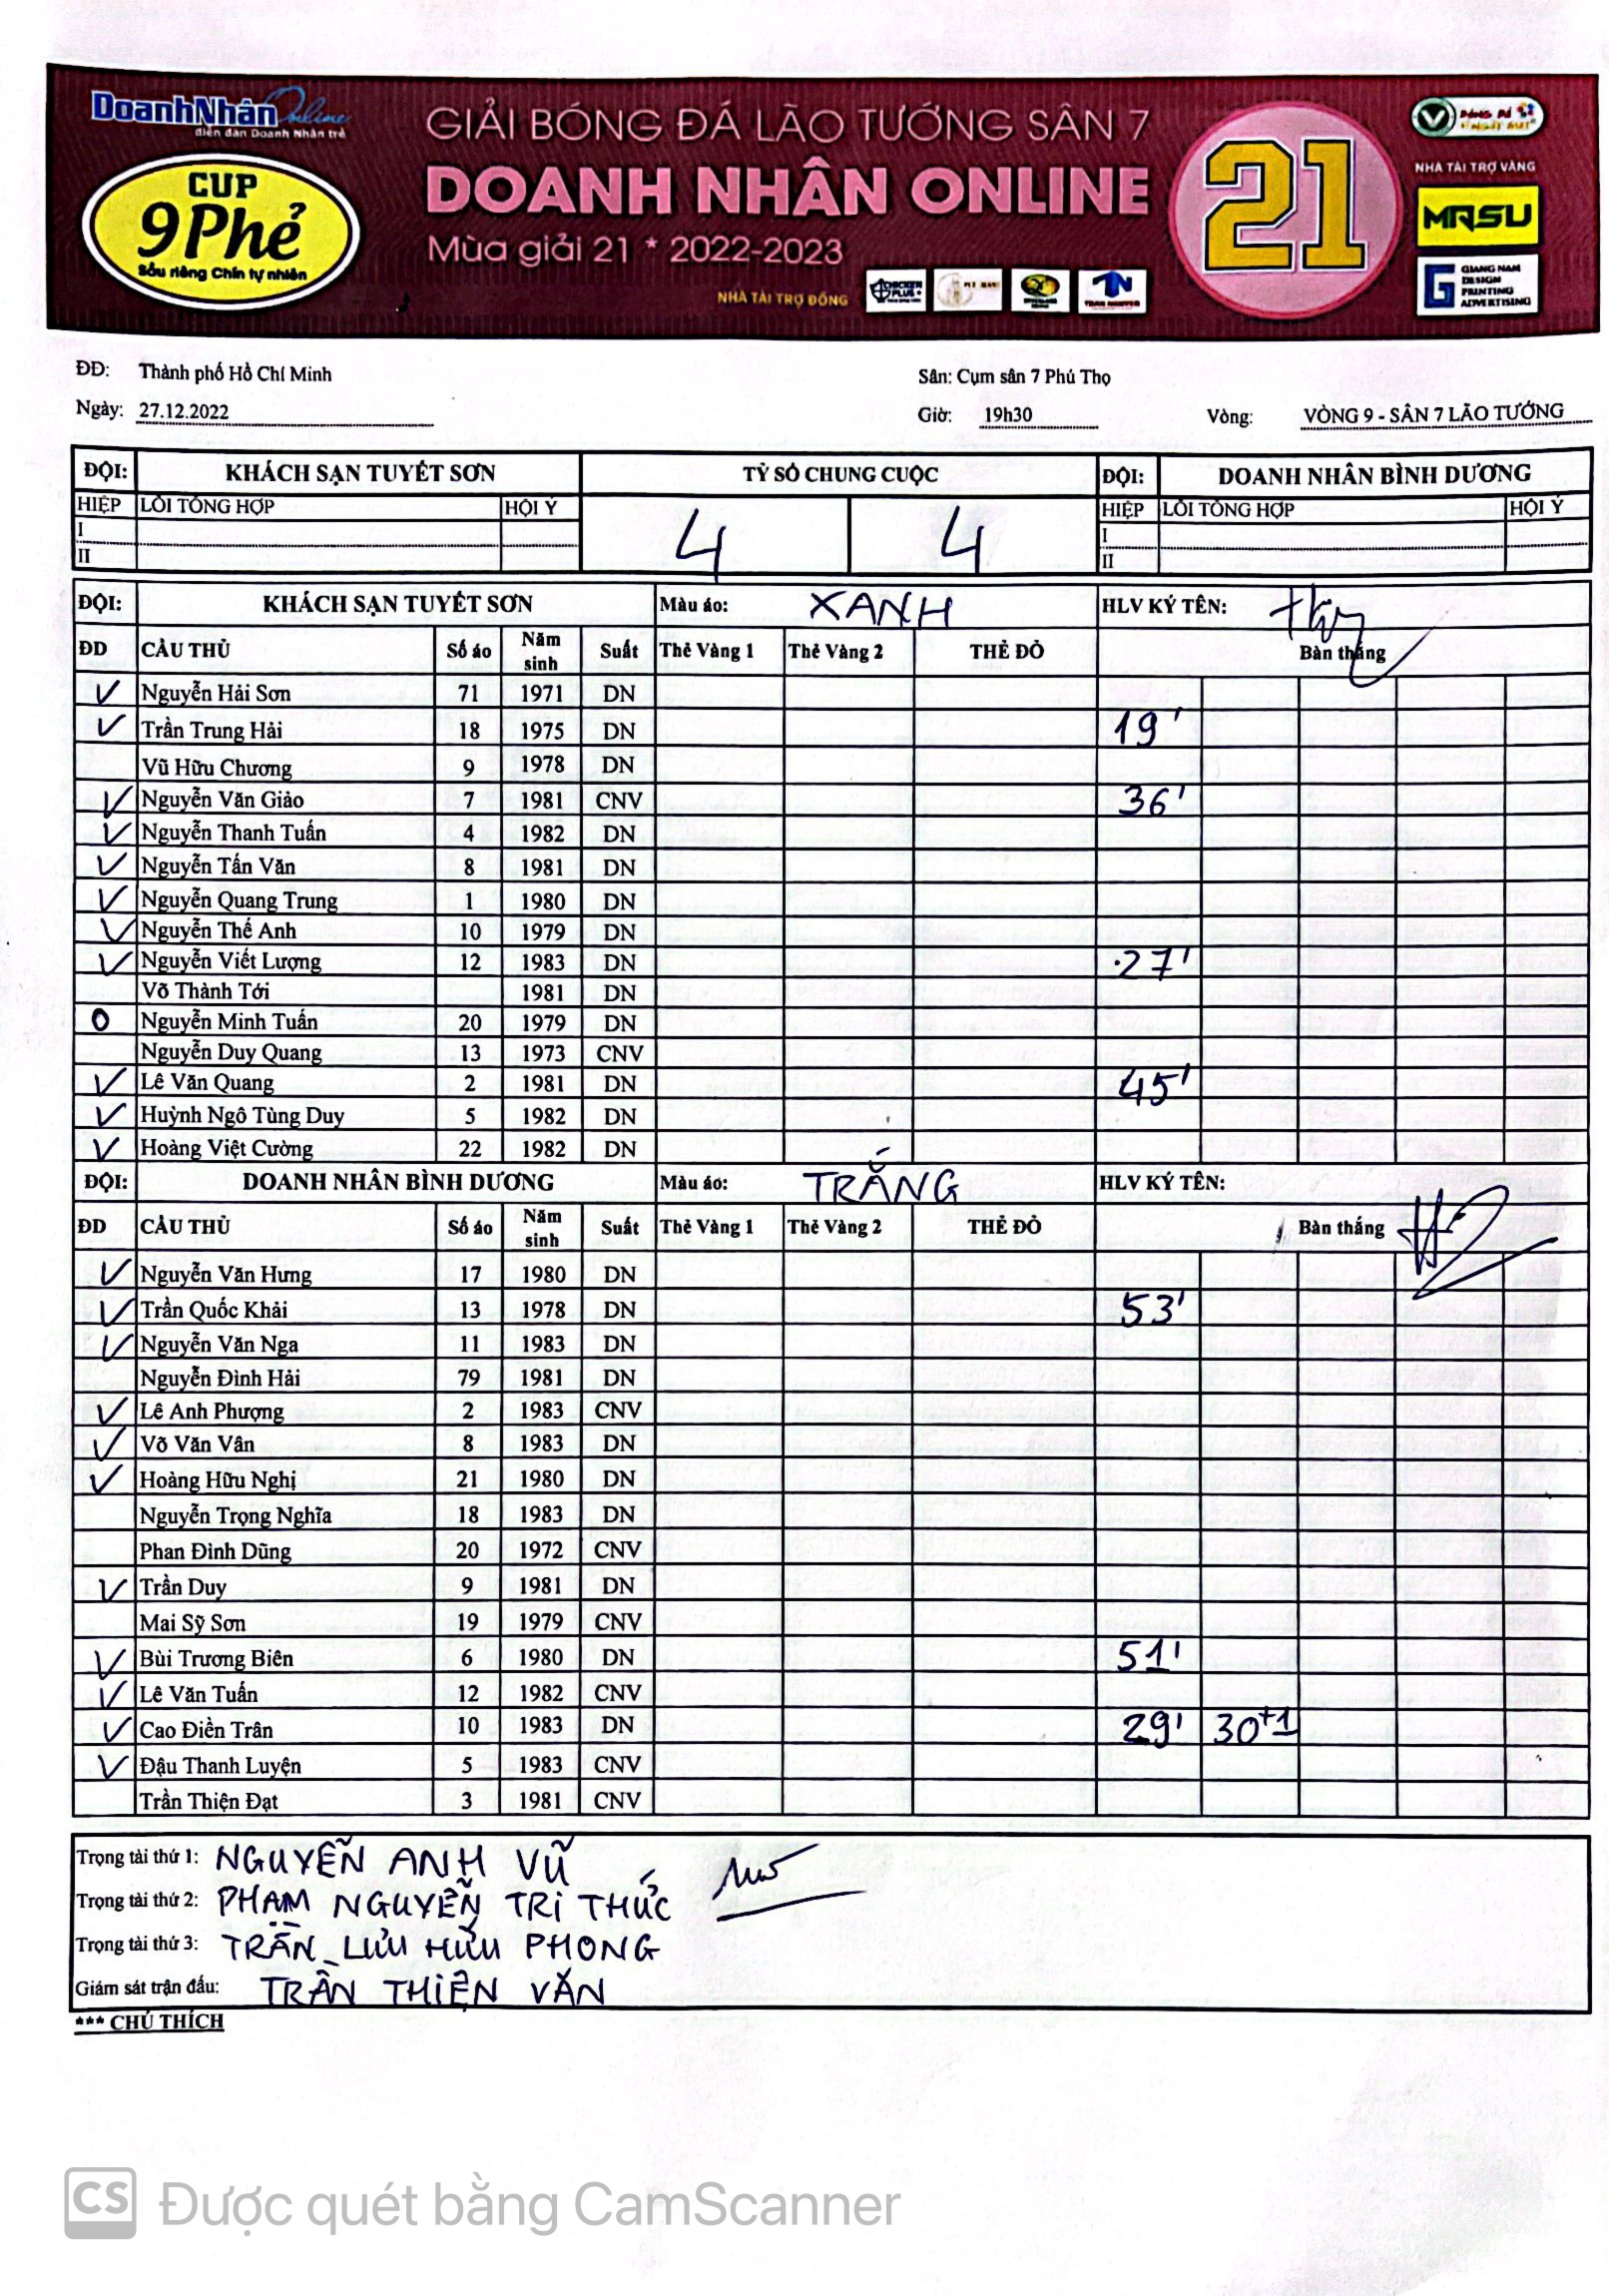 DoanhNhân Online
diễn đàn Doanh Nhân trẻ
CUP
9Phẻ
Sầu riêng Chín tự nhiên
GIẢI BÓNG ĐÁ LÃO TƯỚNG SÂN 7
DOANH NHÂN ONLINE
Mùa giải 21 * 2022-2023
NHÀ TÀI TRỢ ĐỒNG
CHICKEN PLUS+
21
NHÀ TÀI TRỢ VÀNG
MRSU
GIANG NAM
DESIGN
PRINTING
ADVERTISING
ĐĐ: Thành phố Hồ Chí Minh Sân: Cụm sân 7 Phú Thọ
Ngày: 27.12.2022 Giờ: 19h30 Vòng: VÒNG 9 - SÂN 7 LÃO TƯỚNG
ĐỘI: KHÁCH SẠN TUYẾT SƠN TỶ SỐ CHUNG CUỘC ĐỘI: DOANH NHÂN BÌNH DƯƠNG
HIỆP LỖI TỔNG HỢP HỘI Ý 4 4 HIỆP LỖI TỔNG HỢP HỘI Ý
I I
II II
ĐỘI: KHÁCH SẠN TUYẾT SƠN Màu áo: XANH HLV KÝ TÊN:
ĐD CẦU THỦ Số áo Năm sinh Suất Thẻ Vàng 1 Thẻ Vàng 2 THẺ ĐỎ Bàn thắng
Nguyễn Hải Sơn 71 1971 DN
Trần Trung Hải 18 1975 DN 19'
Vũ Hữu Chương 9 1978 DN
Nguyễn Văn Giảo 7 1981 CNV 36'
Nguyễn Thanh Tuấn 4 1982 DN
Nguyễn Tấn Văn 8 1981 DN
Nguyễn Quang Trung 1 1980 DN
Nguyễn Thế Anh 10 1979 DN
Nguyễn Viết Lượng 12 1983 DN 27'
Võ Thành Tới 1981 DN
O Nguyễn Minh Tuấn 20 1979 DN
Nguyễn Duy Quang 13 1973 CNV
Lê Văn Quang 2 1981 DN 45'
Huỳnh Ngô Tùng Duy 5 1982 DN
Hoàng Việt Cường 22 1982 DN
ĐỘI: DOANH NHÂN BÌNH DƯƠNG Màu áo: TRẮNG HLV KÝ TÊN:
ĐD CẦU THỦ Số áo Năm sinh Suất Thẻ Vàng 1 Thẻ Vàng 2 THẺ ĐỎ Bàn thắng
Nguyễn Văn Hưng 17 1980 DN
Trần Quốc Khải 13 1978 DN 53'
Nguyễn Văn Nga 11 1983 DN
Nguyễn Đình Hải 79 1981 DN
Lê Anh Phượng 2 1983 CNV
Võ Văn Vân 8 1983 DN
Hoàng Hữu Nghị 21 1980 DN
Nguyễn Trọng Nghĩa 18 1983 DN
Phan Đình Dũng 20 1972 CNV
Trần Duy 9 1981 DN
Mai Sỹ Sơn 19 1979 CNV
Bùi Trương Biên 6 1980 DN 51'
Lê Văn Tuấn 12 1982 CNV
Cao Điền Trân 10 1983 DN 29' 30+1
Đậu Thanh Luyện 5 1983 CNV
Trần Thiện Đạt 3 1981 CNV
Trọng tài thứ 1: NGUYỄN ANH VŨ
Trọng tài thứ 2: PHẠM NGUYỄN TRI THỨC
Trọng tài thứ 3: TRẦN LƯU HỮU PHONG
Giám sát trận đấu: TRẦN THIỆN VĂN
*** CHÚ THÍCH
CS Được quét bằng CamScanner